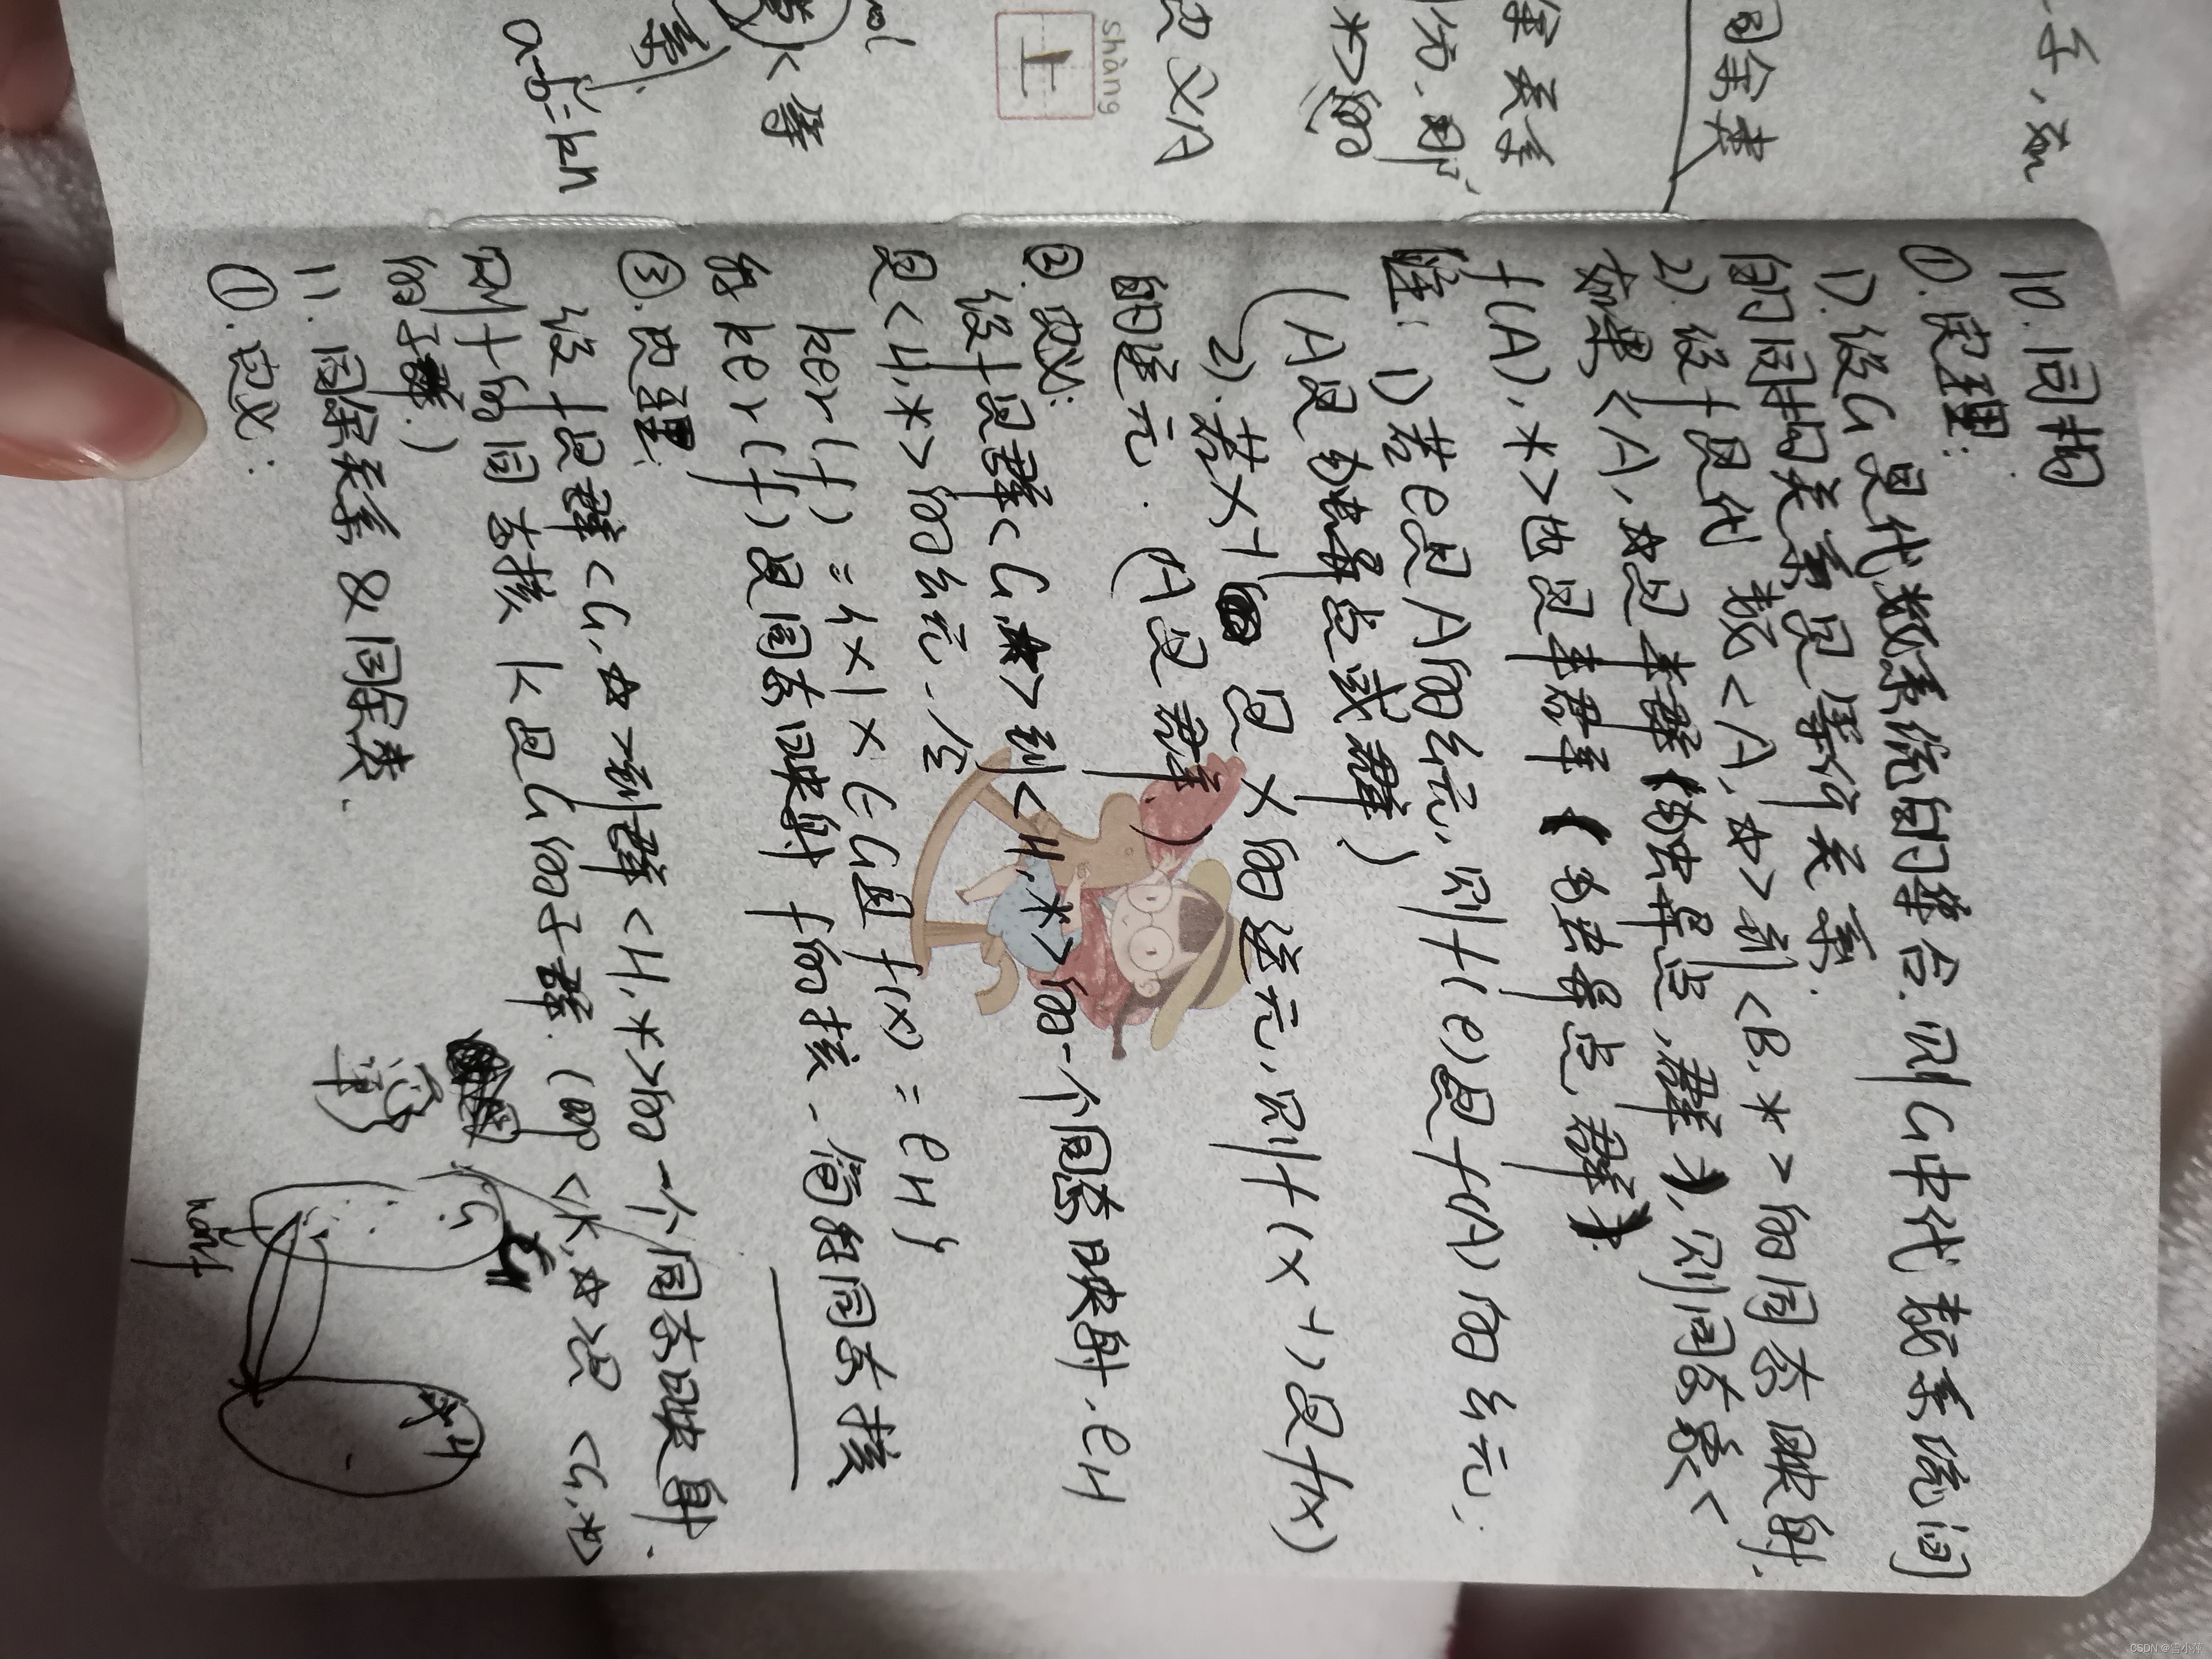 10.同构
①.定理:
1).设G是代数系统的集合.则G中代数系统间
的同构关系是等价关系.
2).设f是代数<A,☆>到<B,*>的同态映射.
如果<A,☆是半群(或独异点,群),则同态象<
f(A),*>也是半群(或独异点,群).
注:1)若e是A的幺元,则f(e)是f(A)的幺元.
(A是独异点或群)
2).若x⁻¹是x的逆元,则f(x⁻¹)是f(x)
的逆元.(A是群)
②.定义:
设f是群<G,☆>到<H,*>的一个同态映射.eH
是<H,*>的幺元.
ker(f)={x|x∈G且f(x)=eH}
称ker(f)是同态映射f的核.简称同态核
③.定理:
设f是群<G,☆>到群<H,*>的一个同态映射.
则f的同态核K是G的子群.(即<K,☆>是<G,☆>
的子群.)
11.同余关系&同余类.
①.定义:
G
H
同余类
余关系
定义A
shàng
上
a-b=kn
CSDN @雪小萍